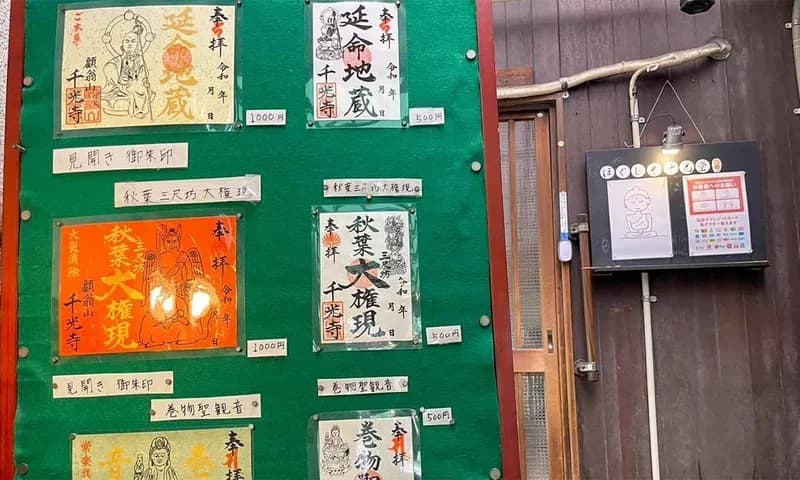 奉拝
延命地蔵
ご本尊
令和 年 月 日
顧翁山
千光寺
1000円
奉拝
延命地蔵
令和 年 月 日
千光寺
500円
見開き 御朱印
秋葉三尺坊大権現
秋葉三尺坊大権現
奉拝
三尺坊
秋葉大権現
火災消除
令和 年 月 日
顧翁山
千光寺
1000円
奉拝
三尺坊
秋葉大権現
令和 年 月 日
千光寺
500円
見開き 御朱印
巻物聖観音
巻物聖観音
500円
奉拝
巻
音
奉拝
巻物
お客様へのお願い